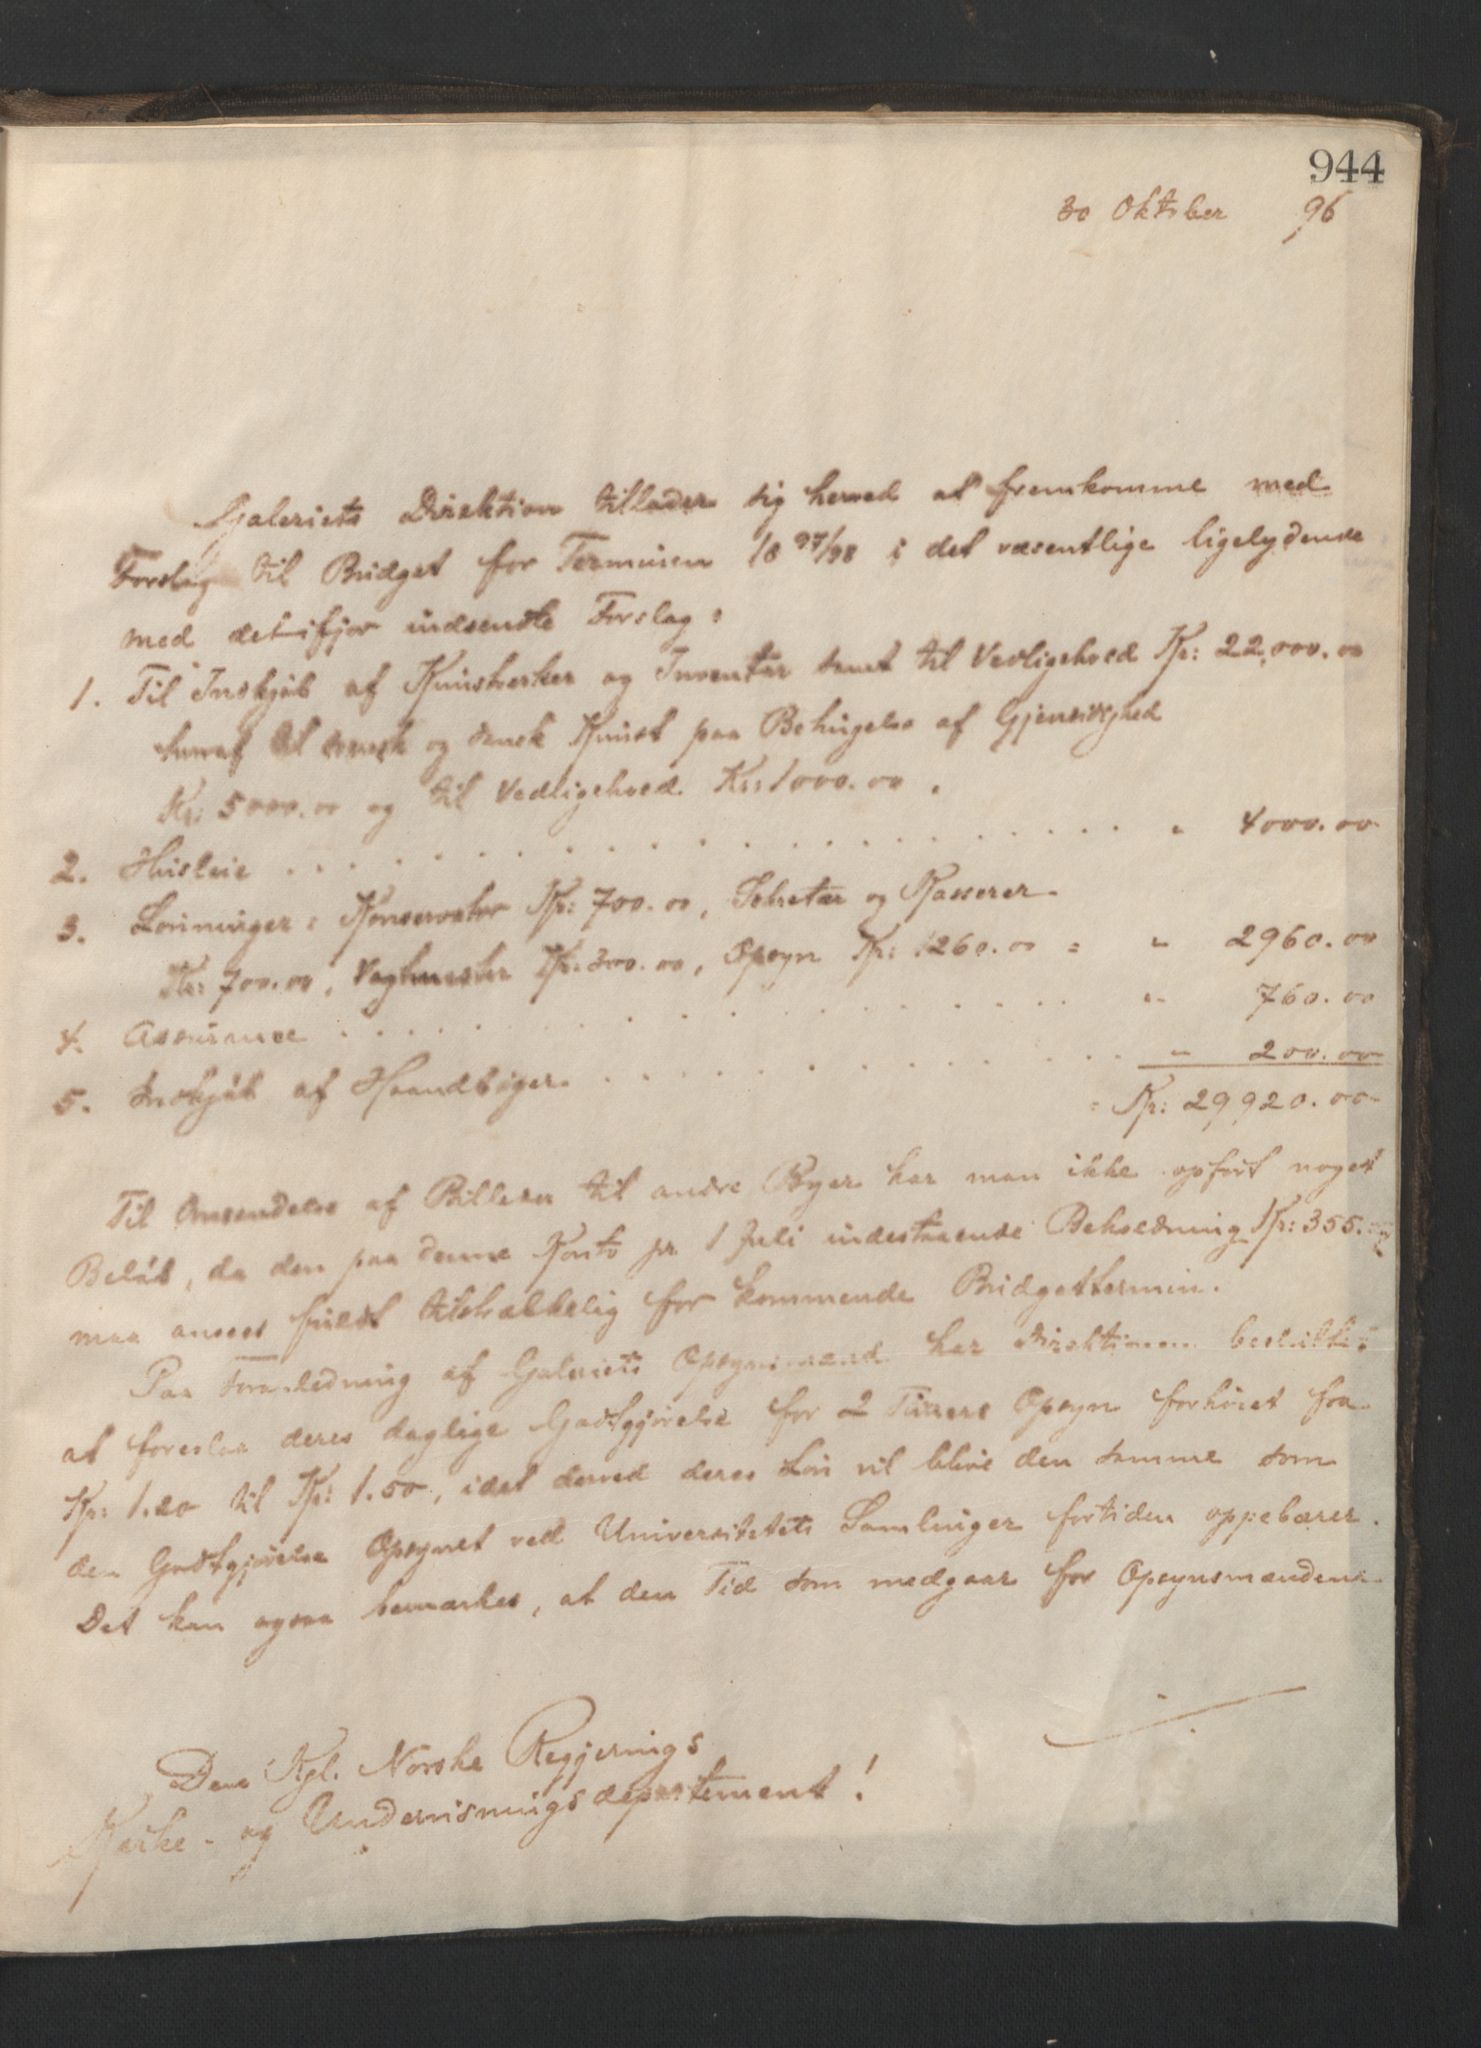 944
30 Oktober 96
Galeriets Direktion tillader sig herved at fremkomme med
Forslag til Budget for Terminen 18 97/98 i det væsentlige ligelydende
med det ifjor indsendte Forslag:
1. Til Indkjøb af Kunstverker og Inventar samt til Vedligehold Kr: 22,000.00
heraf til svensk og dansk Kunst paa Betingelse af Gjensidighed
Kr: 5000.00 og til Vedligehold Kr: 1000.00.
2. Husleie . . . . . . . . . . . . . . . . . . " 4000.00
3. Lønninger: Konservator Kr: 700.00, Sekretær og Kasserer
Kr: 700.00, Vagtmester Kr: 300.00, Opsyn Kr: 1260.00 = " 2960.00
4. Assurance . . . . . . . . . . . . . . . . . . " 760.00
5. Indkjøb af Haandbøger . . . . . . . . . . . . . " 200.00
= Kr: 29,920.00
Til Omsendelse af Billeder til andre Byer har man ikke opført noget
Beløb, da den paa denne Konto pr 1 Juli indestaaende Beholdning Kr: 355.
maa ansees fuldt tilstrækkelig for kommende Budgettermin.
Paa Foranledning af Galeriets Opsynsmænd har Direktionen besluttet
at foreslaa deres daglige Godtgjørelse for 2 Timers Opsyn forhøiet fra
Kr: 1.20 til Kr: 1.50, idet derved deres Løn vil blive den samme som
den Godtgjørelse Opsynet ved Universitetets Samlinger fortiden oppebærer.
Det kan ogsaa bemærkes, at den Tid som medgaar for Opsynsmændene
Den Kgl. Norske Regjerings
Kirke- og Undervisningsdepartement!